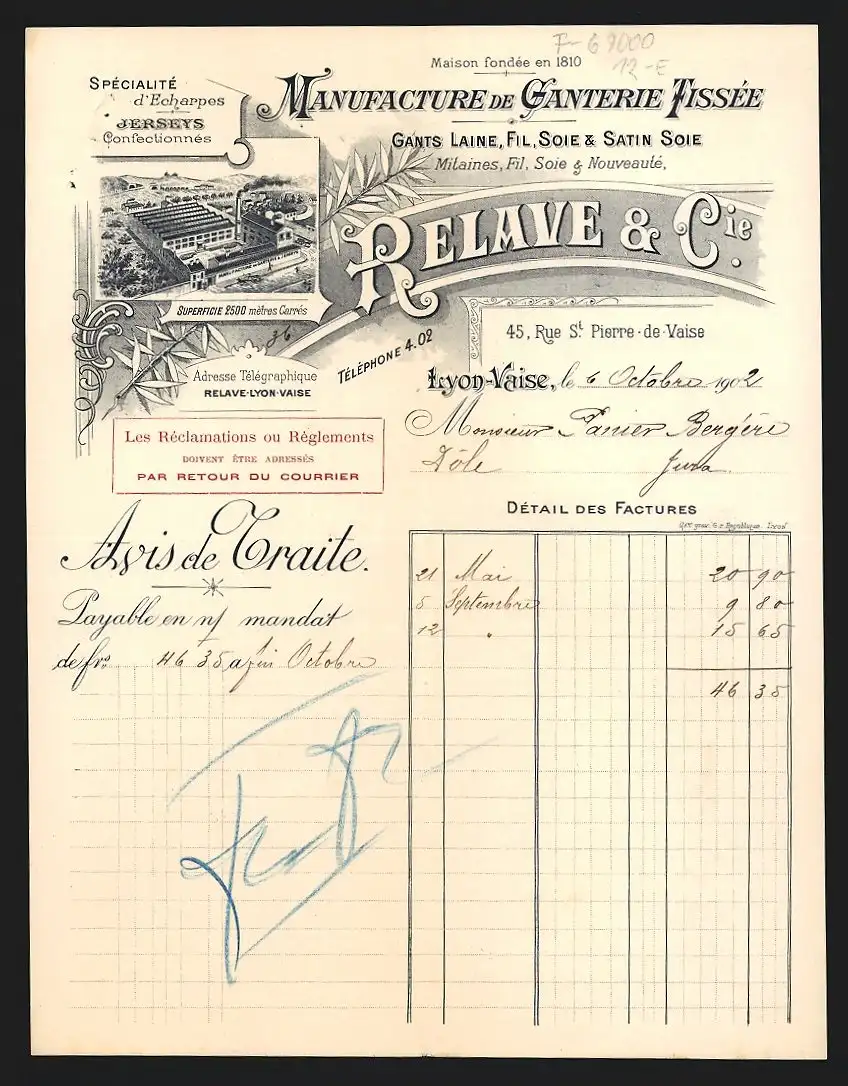 F-69000
12-E
Maison fondée en 1810
SPÉCIALITÉ
d'Echarpes
JERSEYS
Confectionnés
MANUFACTURE DE GANTERIE TISSÉE
GANTS LAINE, FIL, SOIE & SATIN SOIE
Mitaines, Fil, Soie & Nouveauté,
RELAVE & Cie.
SUPERFICIE 2500 mètres Carrés
36
45, Rue St Pierre-de-Vaise
TÉLÉPHONE 4.02
Adresse Télégraphique
RELAVE-LYON-VAISE
Lyon-Vaise, le 6 Octobre 1902
Monsieur Panier Bergère
Dôle Jura
Les Réclamations ou Règlements
DOIVENT ÊTRE ADRESSÉS
PAR RETOUR DU COURRIER
DÉTAIL DES FACTURES
Avis de Traite.
Payable en n/ mandat
de frs 46 35 a fin Octobre
21 Mai 20 90
5 Septembre 9 80
12 " 15 65
46 35